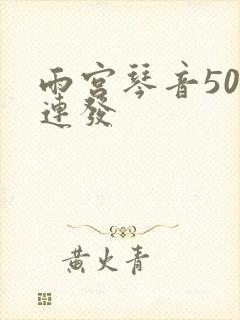 雨宮琴音50
連發
黄火青